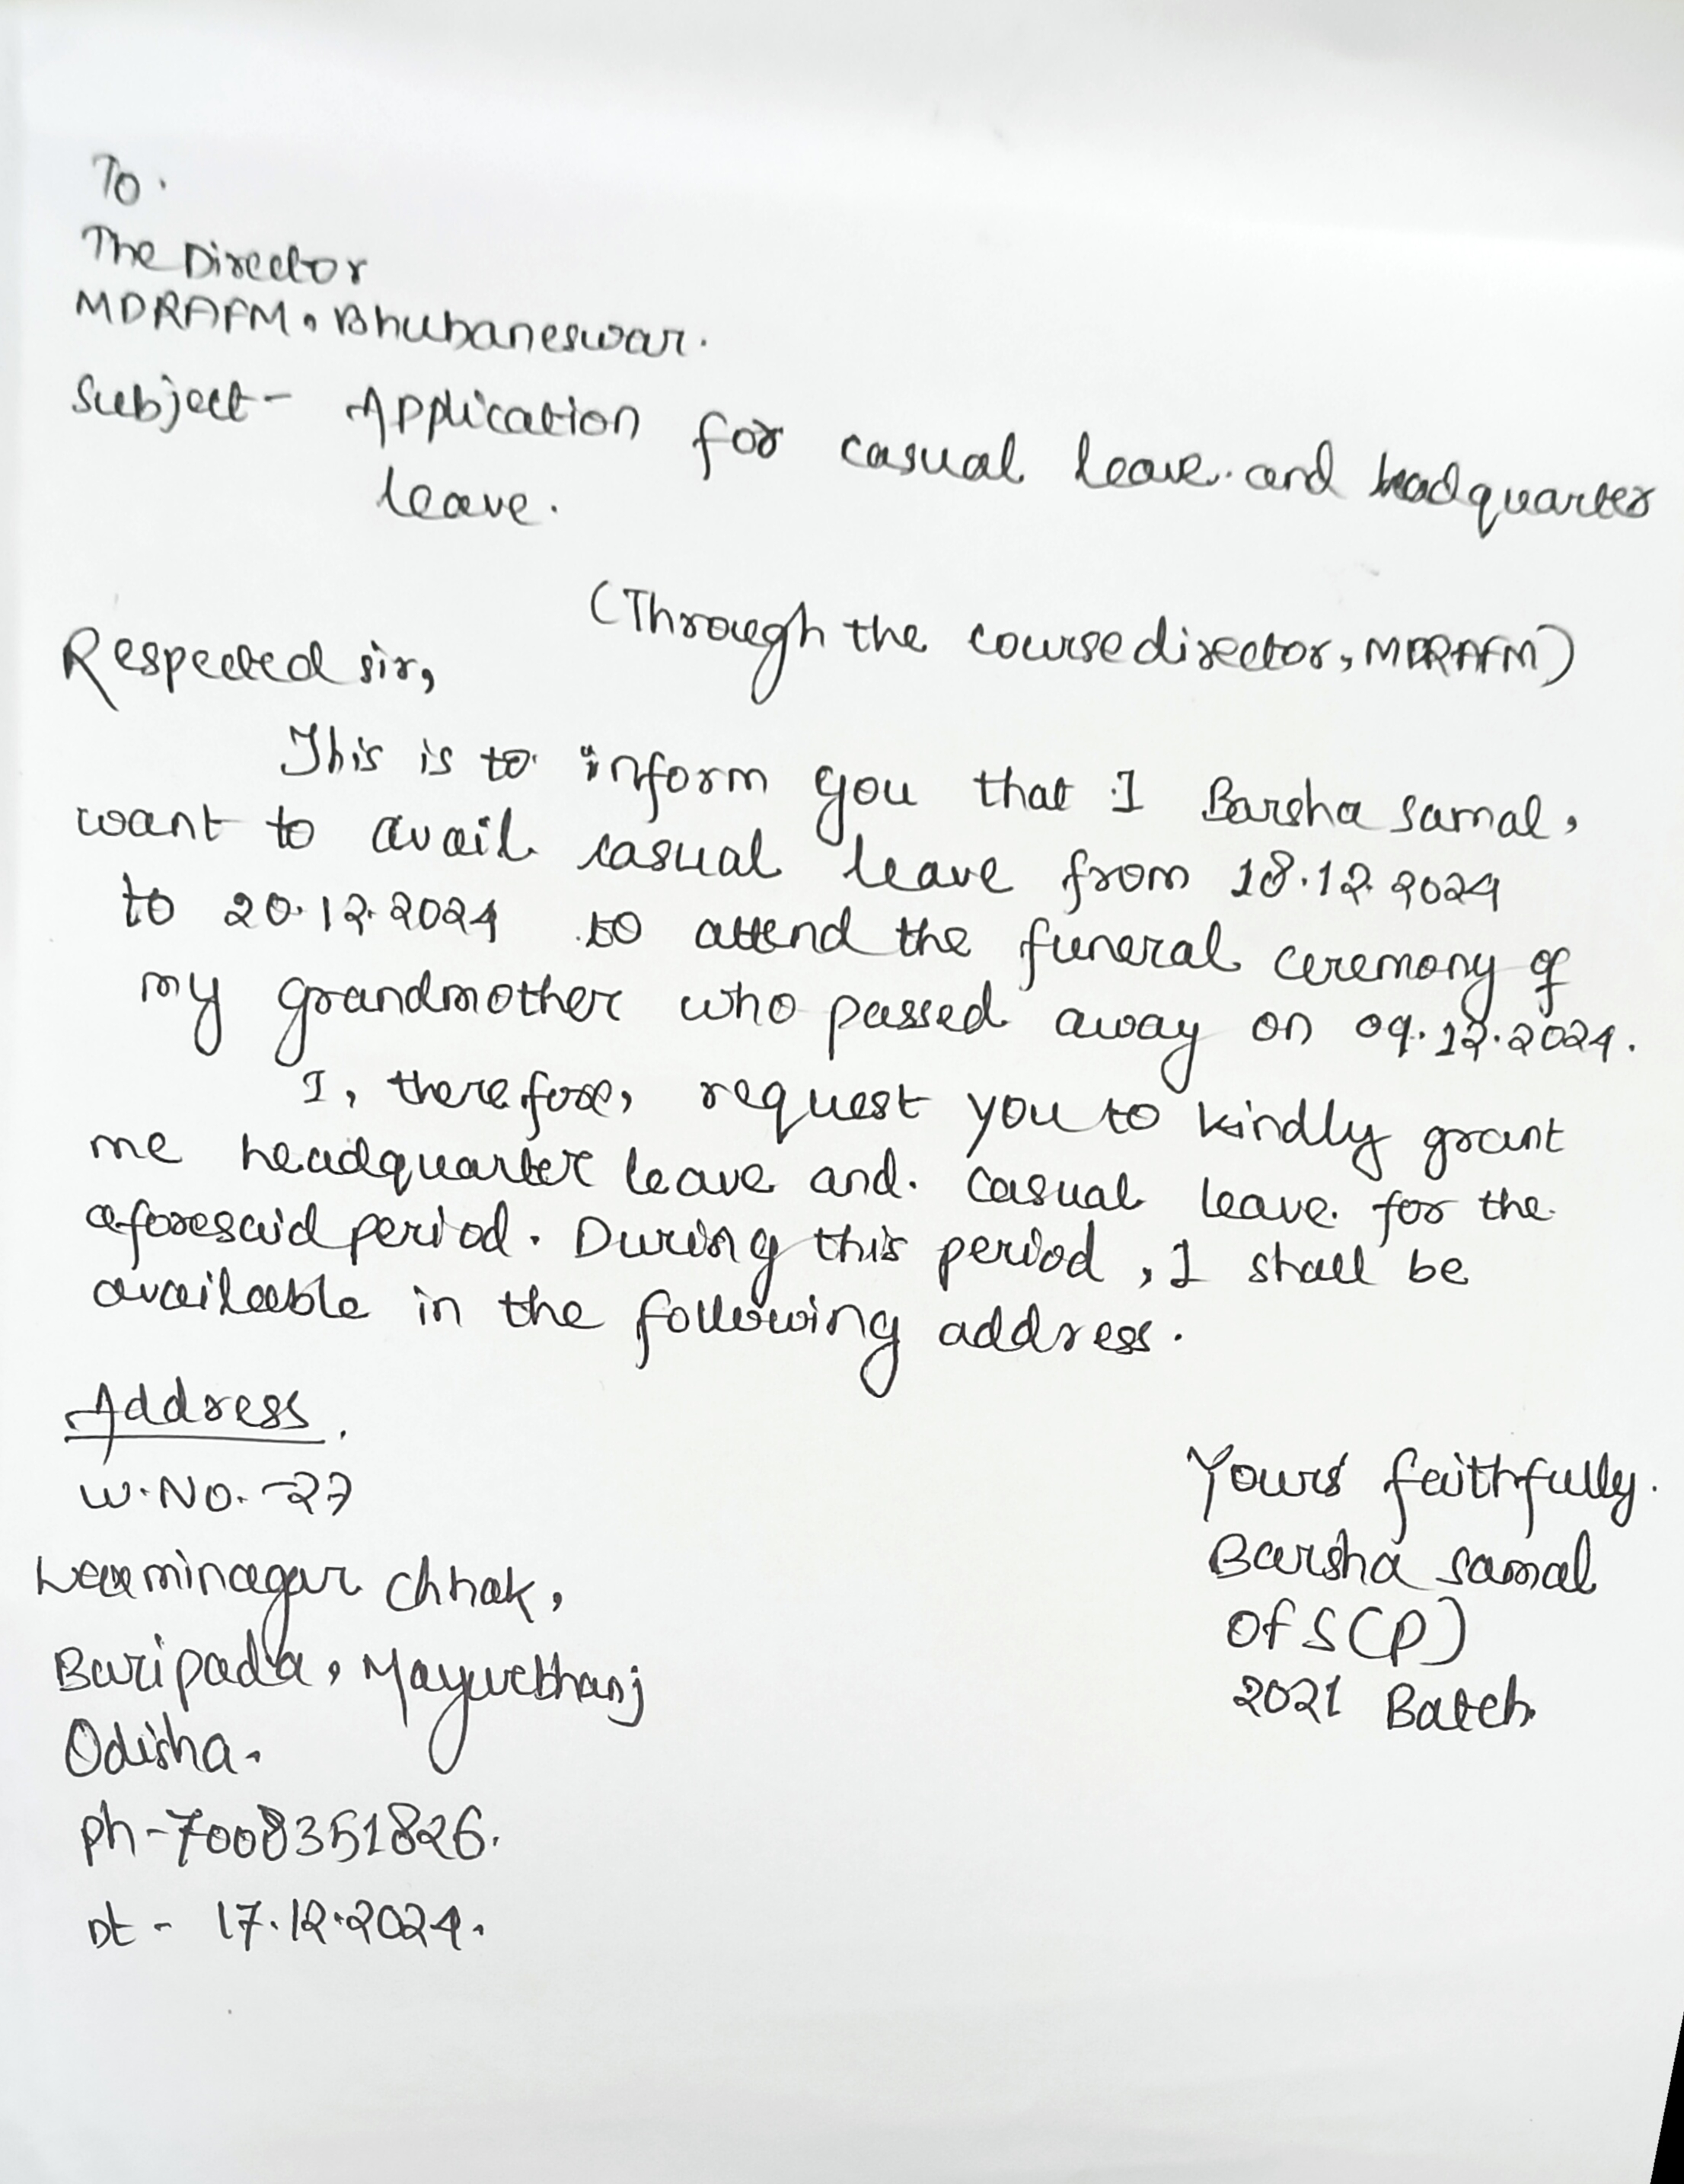 To.
The Director
MDRAFM, Bhubaneswar.
Subject- Application for casual leave and headquarter
leave.
(Through the course director, MDRAFM)
Respected sir,
This is to inform you that I Barsha Samal,
want to avail casual leave from 18.12.2024
to 20.12.2024 to attend the funeral ceremony of
my grandmother who passed away on 09.12.2024.
I, therefore, request you to kindly grant
me headquarter leave and casual leave for the
aforesaid period. During this period, I shall be
available in the following address.
Address.
W.No.-27
Laxminagar Chhak,
Baripada, Mayurbhanj
Odisha.
Ph-7008351826.
Dt - 17.12.2024.
Yours faithfully.
Barsha Samal
OfS(P)
2021 Batch